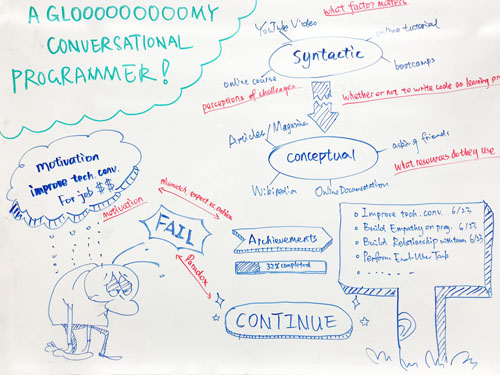 A GLOOOOOOOOOMY
CONVERSATIONAL
PROGRAMMER!
what factor matters
YouTube Video
online tutorial
syntactic
bootcamps
online course
perceptions of challenges
whether or not to write code as learning
Articles/Magazines
asking friends
conceptual
what resources do they use
Wikipedia
Online Documentation
motivation
improve tech. conv.
For job $$
motivation
mismatch expect vs.
FAIL
Paradox
Achievements
32% completed
CONTINUE
Improve tech. conv. 6/23
Build Empathy on prog.
Build Relationship
Perform End-User Task